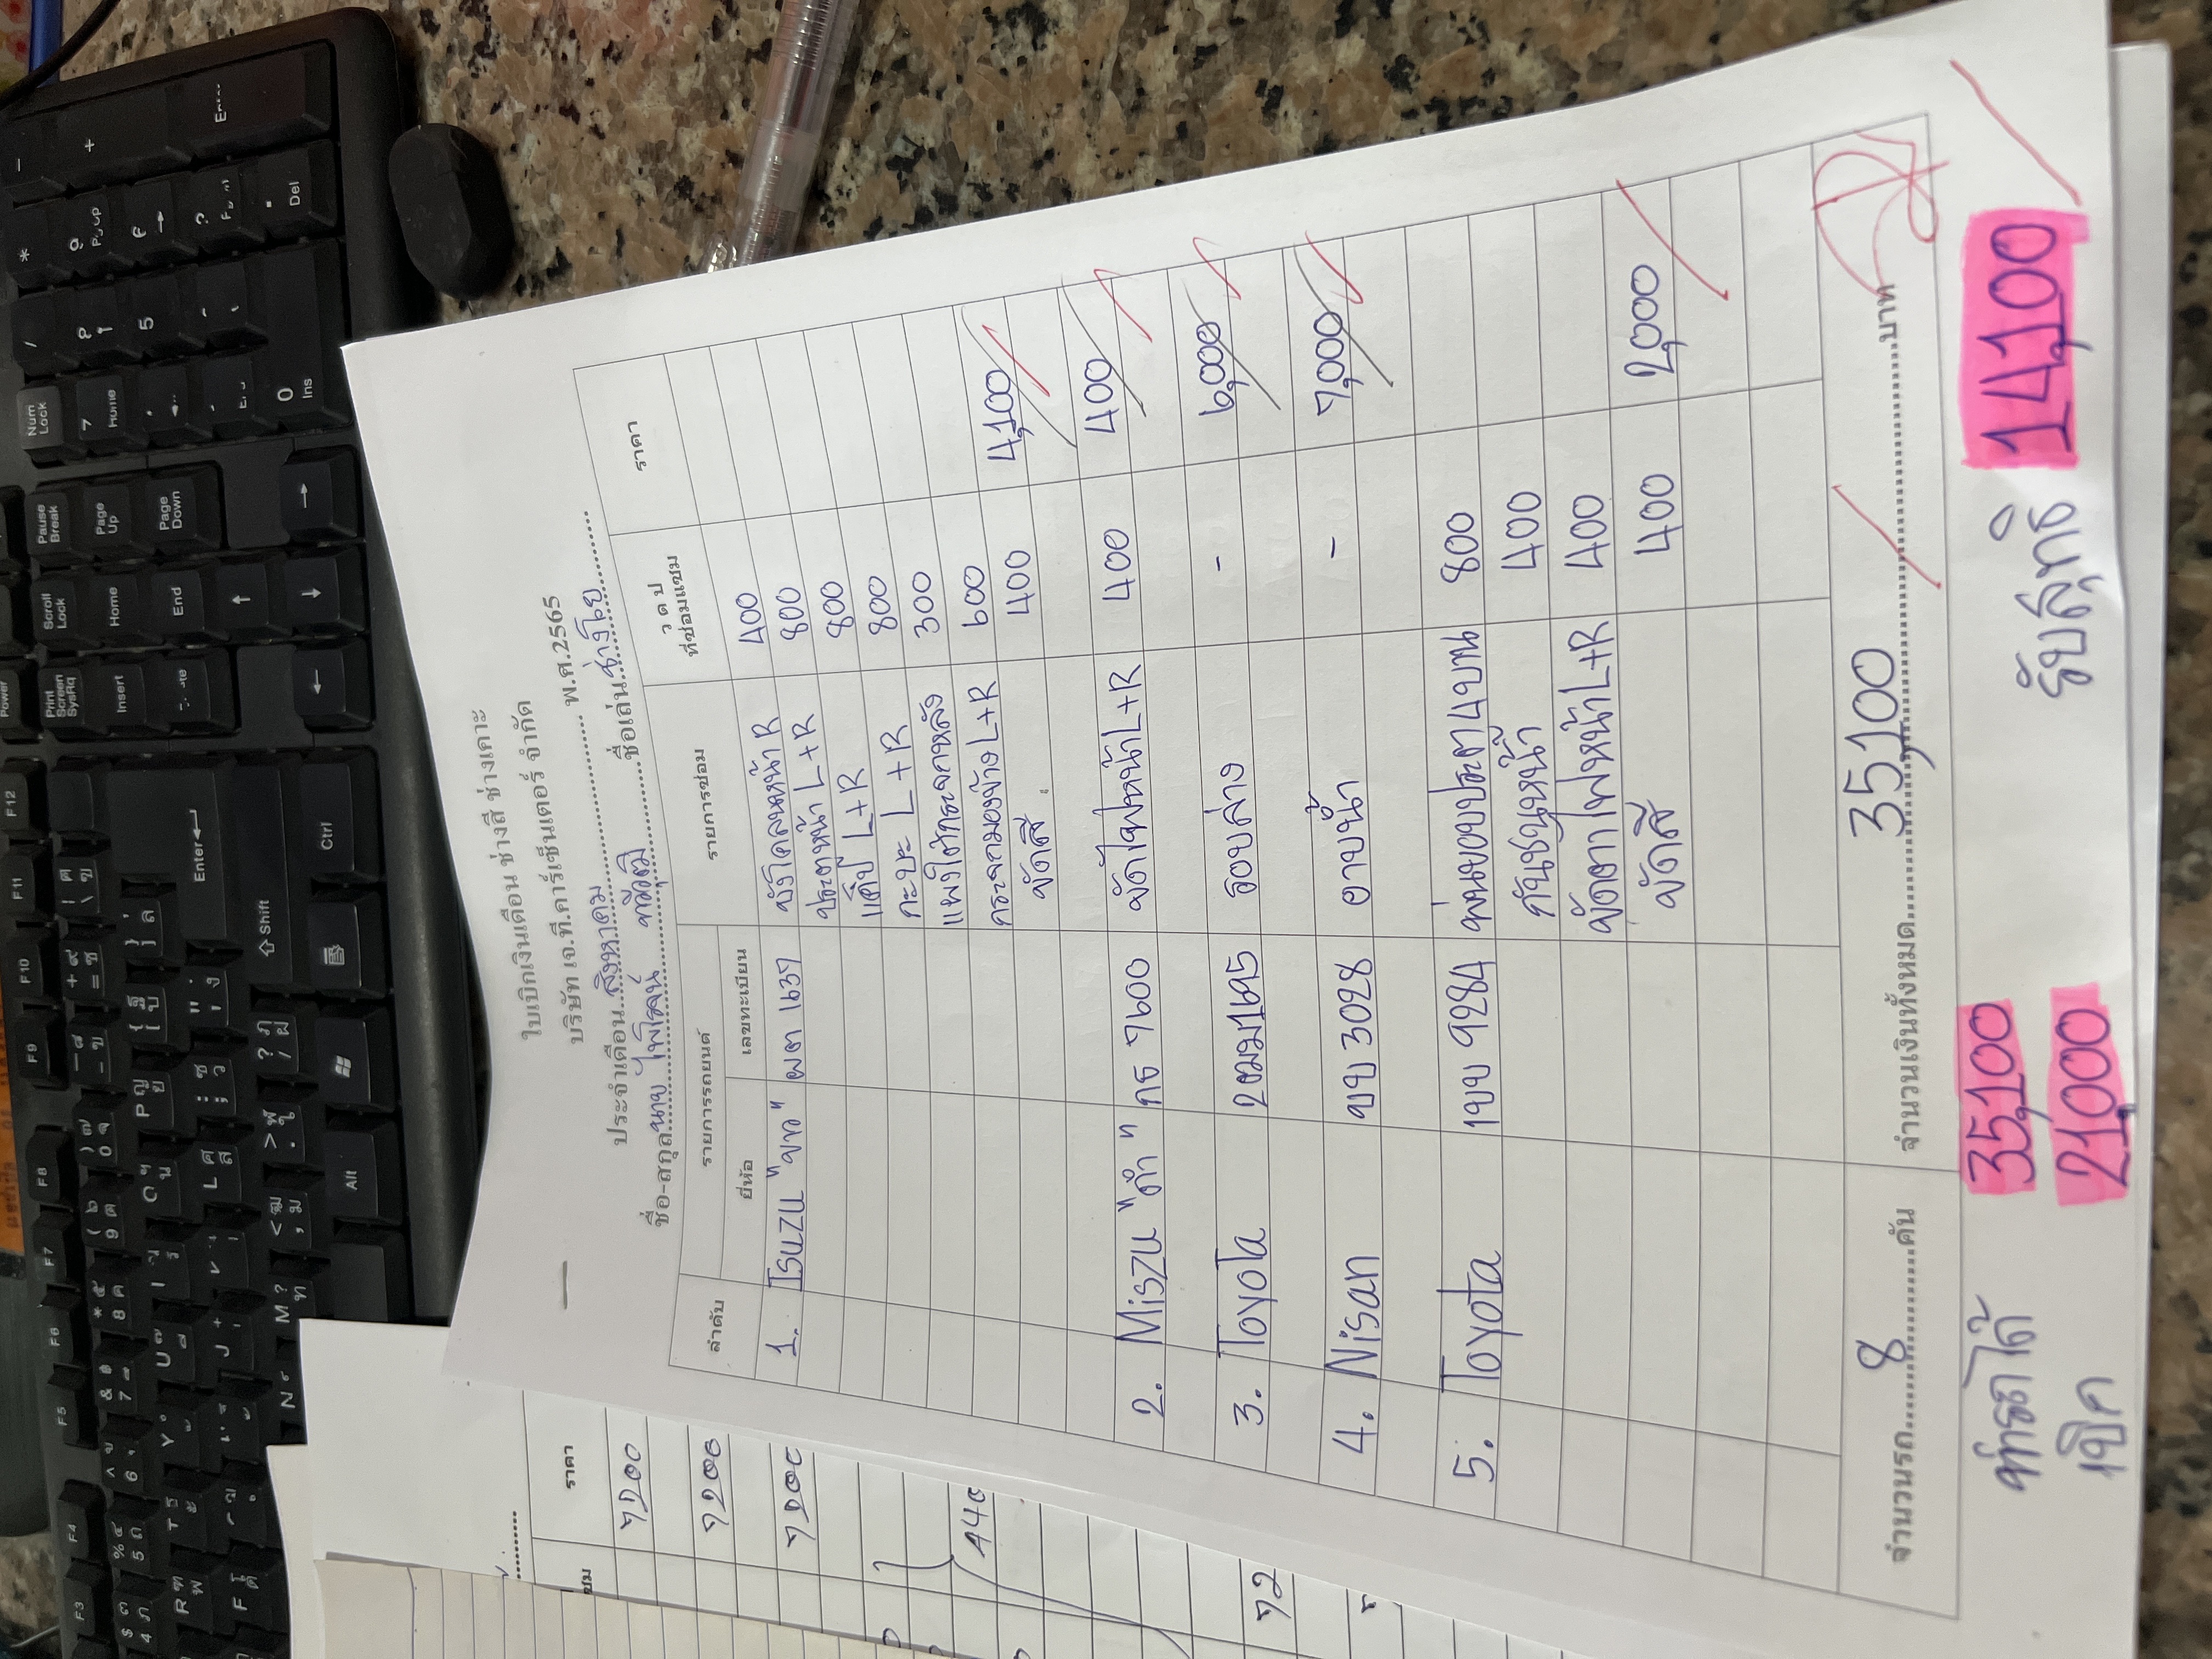 ใบเบิกเงินเดือน ช่างสี ช่างเคาะ
บริษัท เจ.ที.คาร์เซ็นเตอร์ จำกัด
ประจำเดือน สิงหาคม พ.ศ.2565
ชื่อ-สกุล นาย ไพโรจน์ ชื่อเล่น ช่างโย
ลำดับ รายการรถยนต์ รายการซ่อม ว ด ป ที่ซ่อมแซม ราคา
ยี่ห้อ เลขทะเบียน
1. Isuzu "ขาว" ผต 1637 บังโคลนหน้า R 400
ประตูหน้า L+R 800
แค๊ป L+R 800
กะบะ L+R 800
แผงใต้กระจกหลัง 300
กระจกมองข้าง L+R 600 4,100
ขัดสี 400
2. Miszu "ดำ" กธ 7600 ขัดไฟหน้า L+R 400 400
3. Toyota 2ฒฆ1695 รอบล่าง - 6,000
4. Nisan ขข 3028 อาบน้ำ - 7,000
5. Toyota 1ขข 9284 ท่อนบนประตู 4 บาน 800
กันชนหน้า 400
ขัดตาไฟหน้า L+R 400
ขัดสี 400 2,000
จำนวนรถ 8 คัน จำนวนเงินทั้งหมด 35,100 บาท
ทำรถได้ 35,100
เบิก 21,000 รับสุทธิ 14,100
ราคา
7200
7200
7200
440
72
Power
Print Screen SysRq
Scroll Lock
Pause Break
Insert
Home
Page Up
End
Page Down
Num Lock
Enter
Shift
Ctrl
Alt
Del
0 Ins
F3
F4
F5
F6
F7
F8
F9
F10
F11
F12